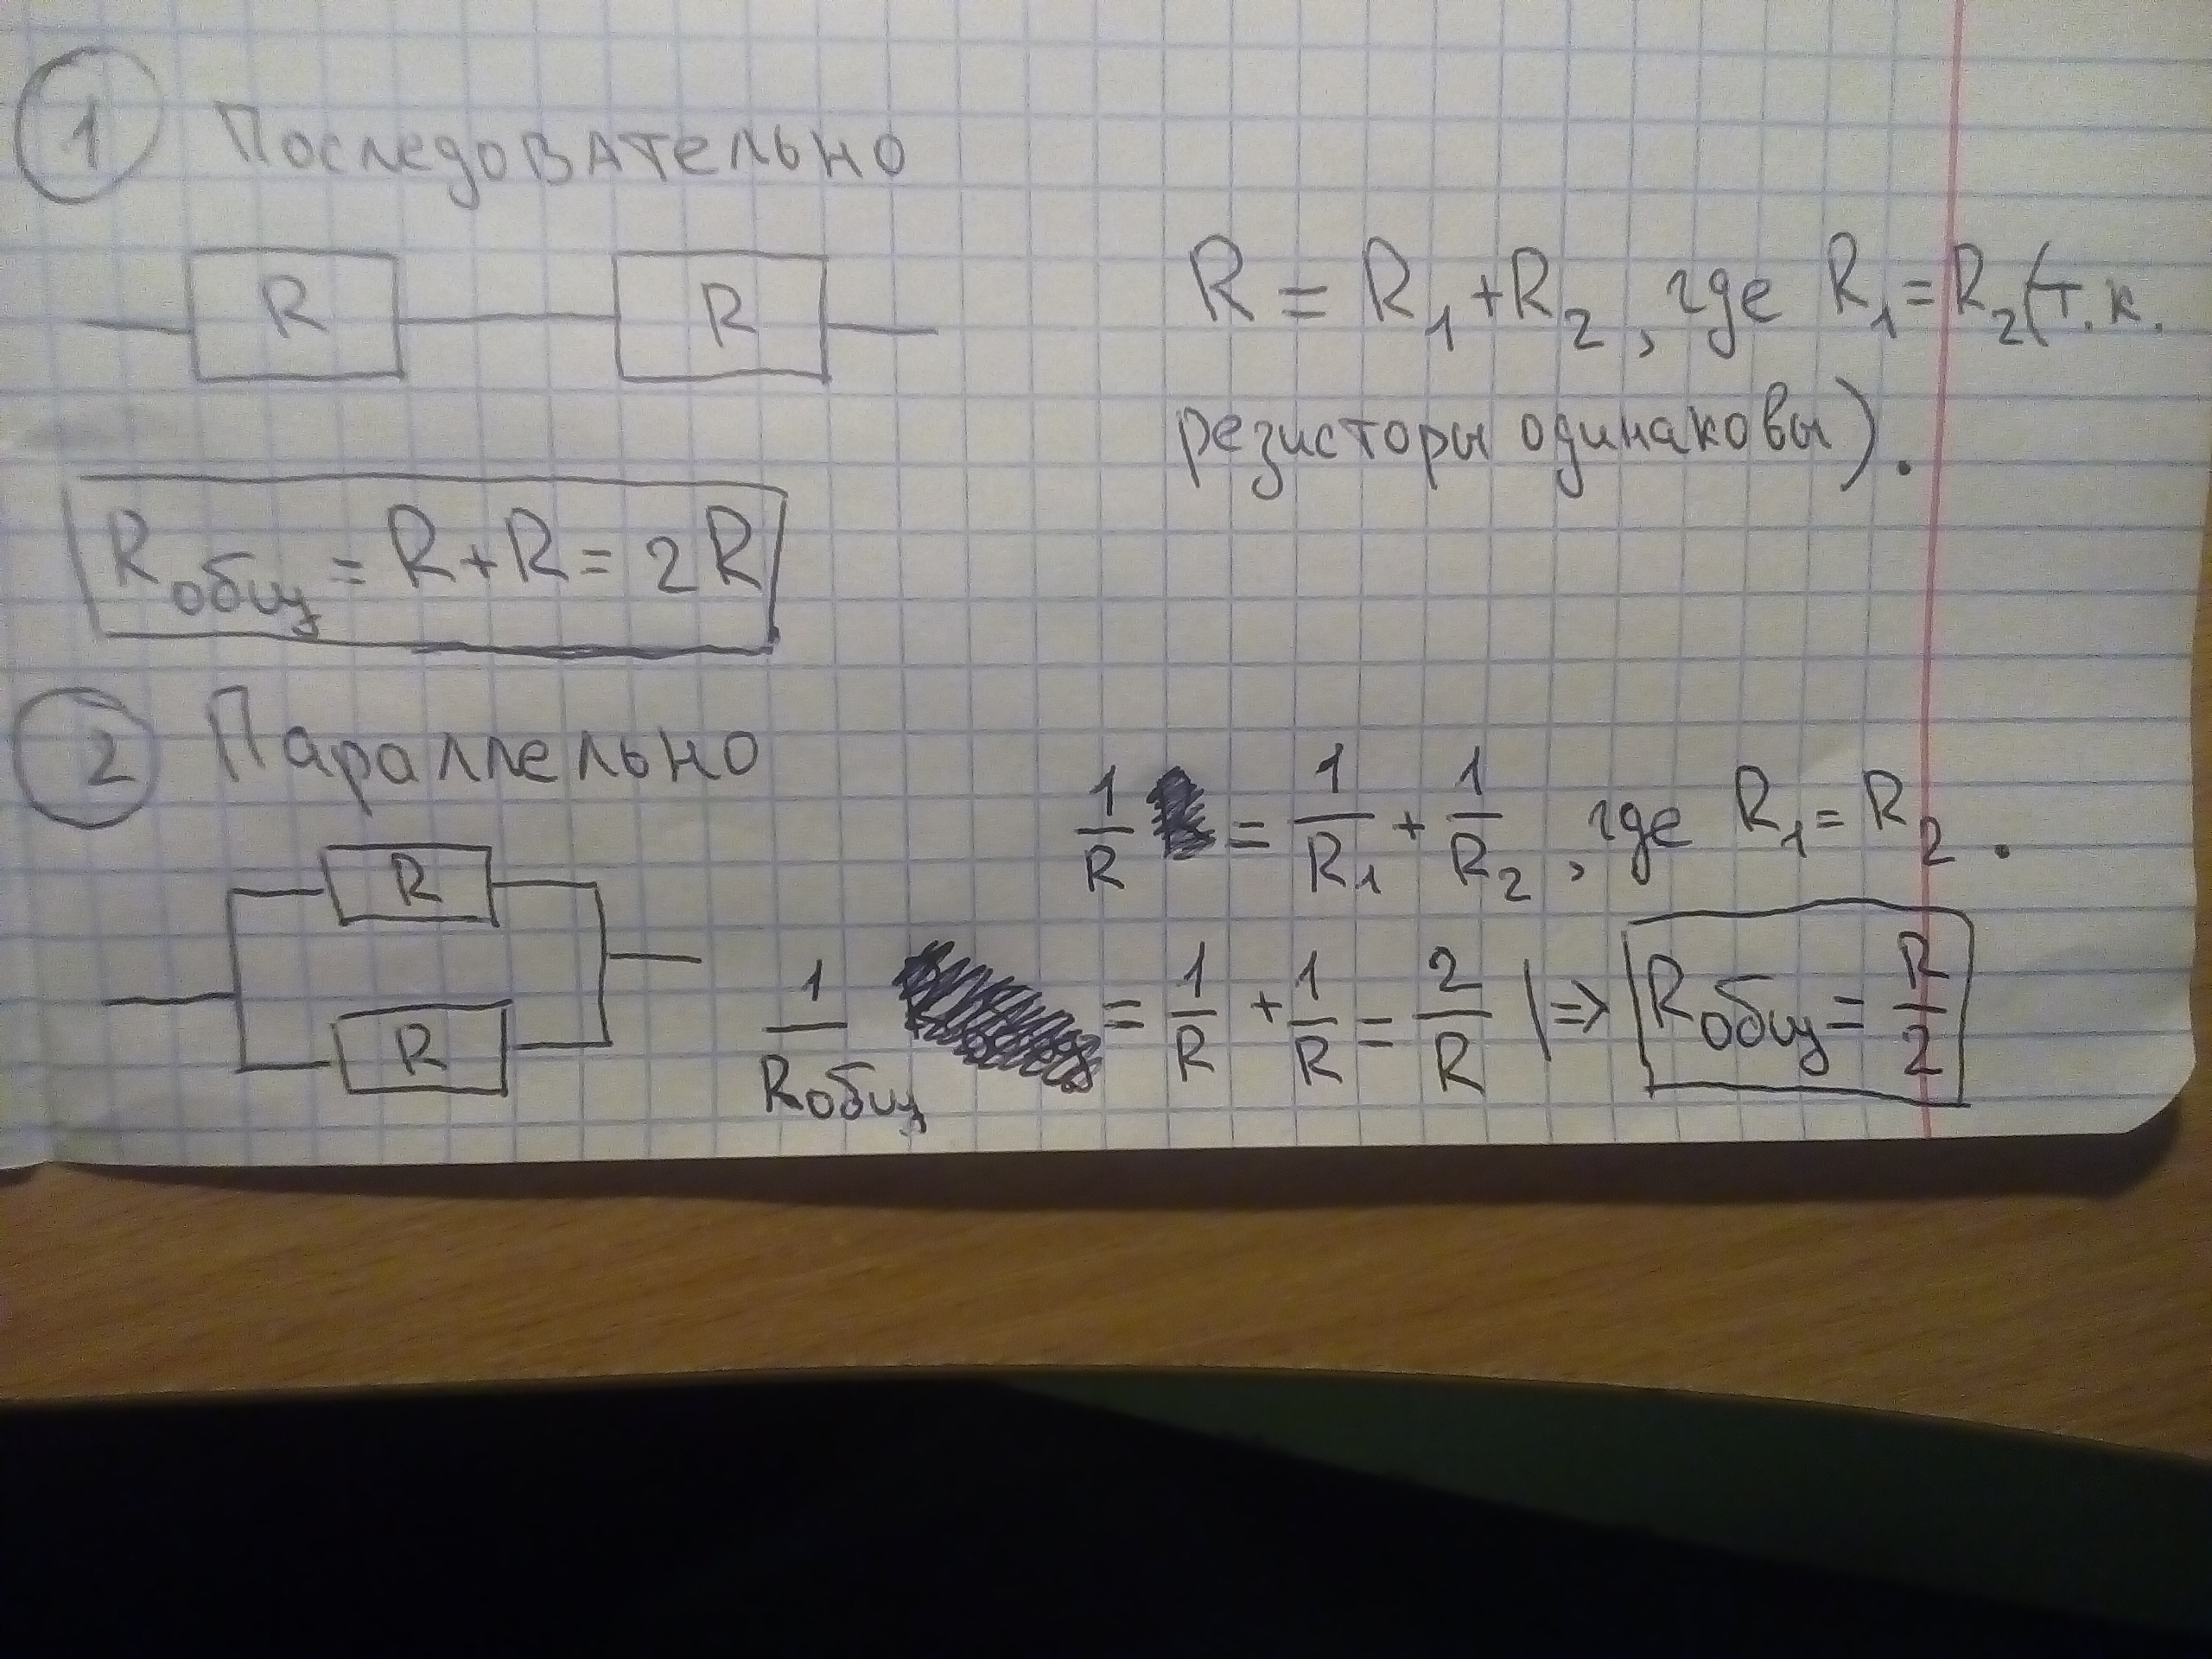 1 Последовательно
R R
R = R₁ + R₂, где R₁ = R₂ (т.к.
резисторы одинаковы).
Rобщ = R + R = 2R
2 Параллельно
1/R = 1/R₁ + 1/R₂, где R₁ = R₂.
R
R
1/Rобщ = 1/R + 1/R = 2/R |⇒ Rобщ = R/2